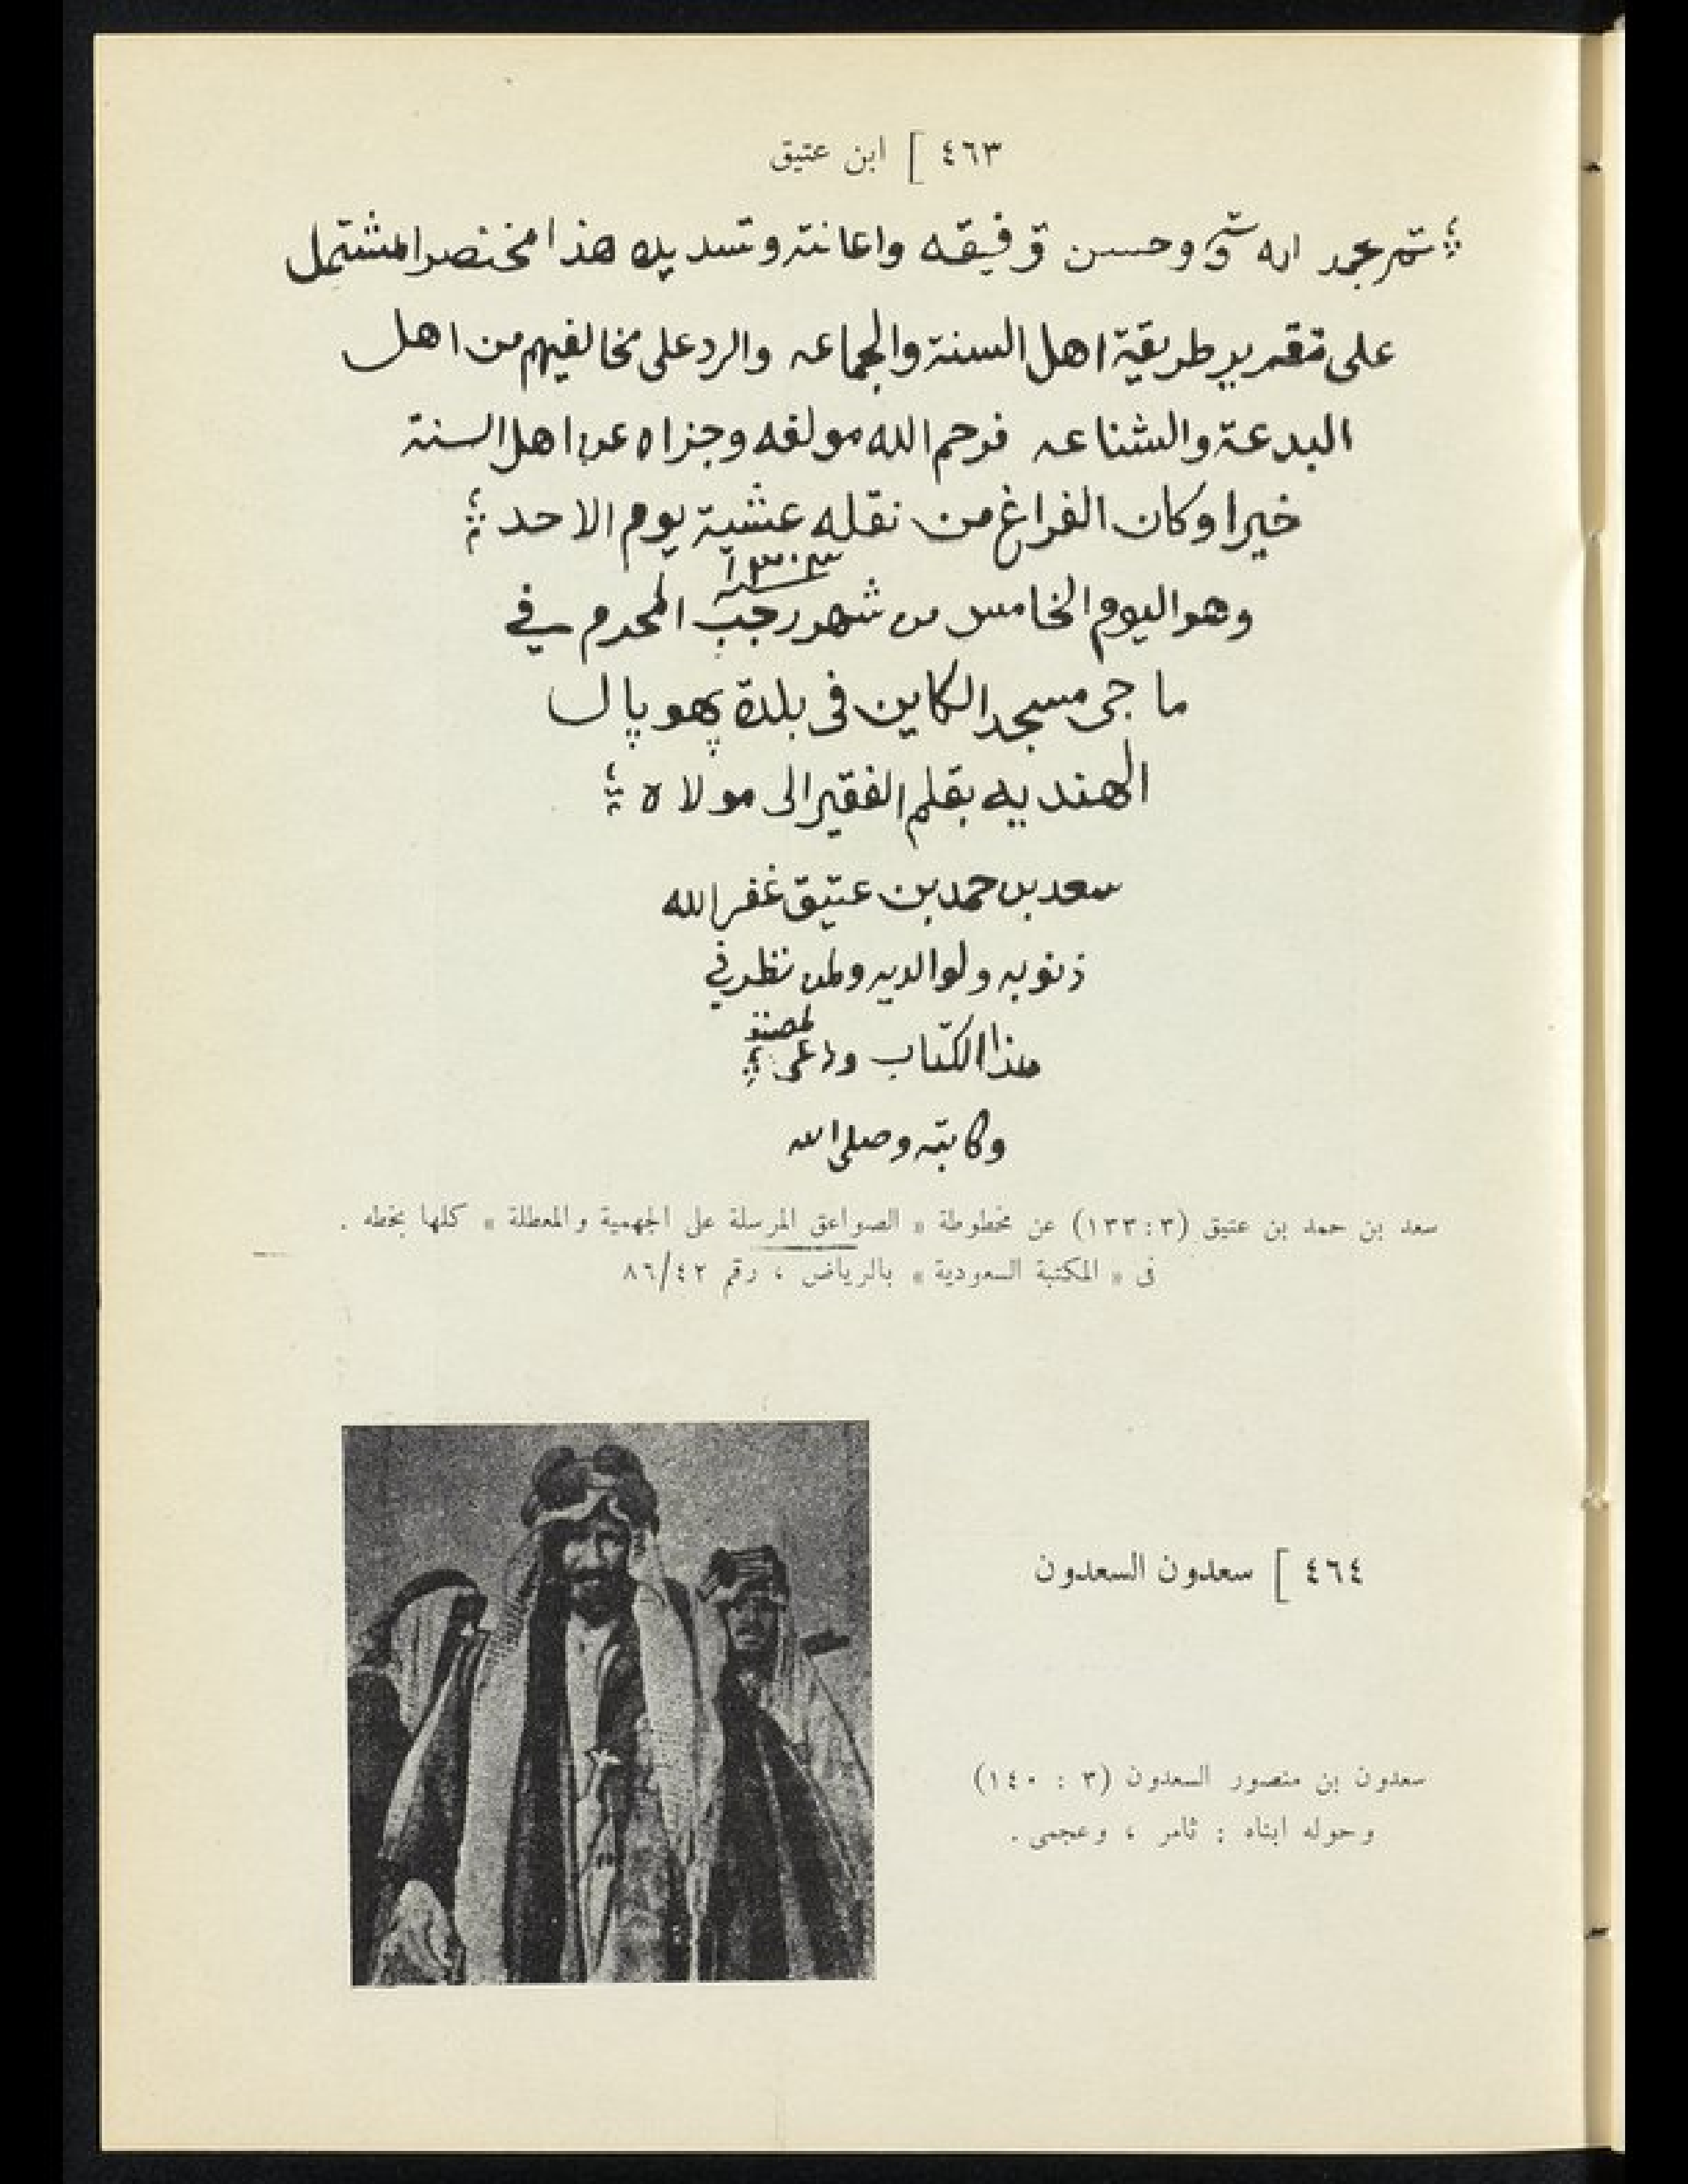 ٤٦٣ [ ابن عتيق
تم بحمد الله وحسن توفيقه واعانته وتسديده هذا مختصر المشتمل
على تقرير طريقة اهل السنة والجماعه والرد على مخالفيهم من اهل
البدعة والشناعه فرحم الله مولفه وجزاه عن اهل السنة
خيرا وكان الفراغ من نقله عشية يوم الاحد
وهو اليوم الخامس من شهر رجب ١٣٠٣ المحرم في
ما جى مسجد الكاين فى بلدة پهوپال
الهنديه بقلم الفقير الى مولاه
سعد بن حمد بن عتيق غفر الله
ذنوبه ولوالديه ولمن نظر في
هذا الكتاب ودعى لمصنفه
وكاتبه وصلى الله
سعد بن حمد بن عتيق (٣ : ١٣٣) عن مخطوطة « الصواعق المرسلة على الجهمية والمعطلة » كلها بخطه .
فى « المكتبة السعودية » بالرياض ، رقم ٨٦/٤٢
٤٦٤ [ سعدون السعدون
سعدون بن منصور السعدون (٣ : ١٤٠)
وحوله ابناه : ثامر ، وعجمى .